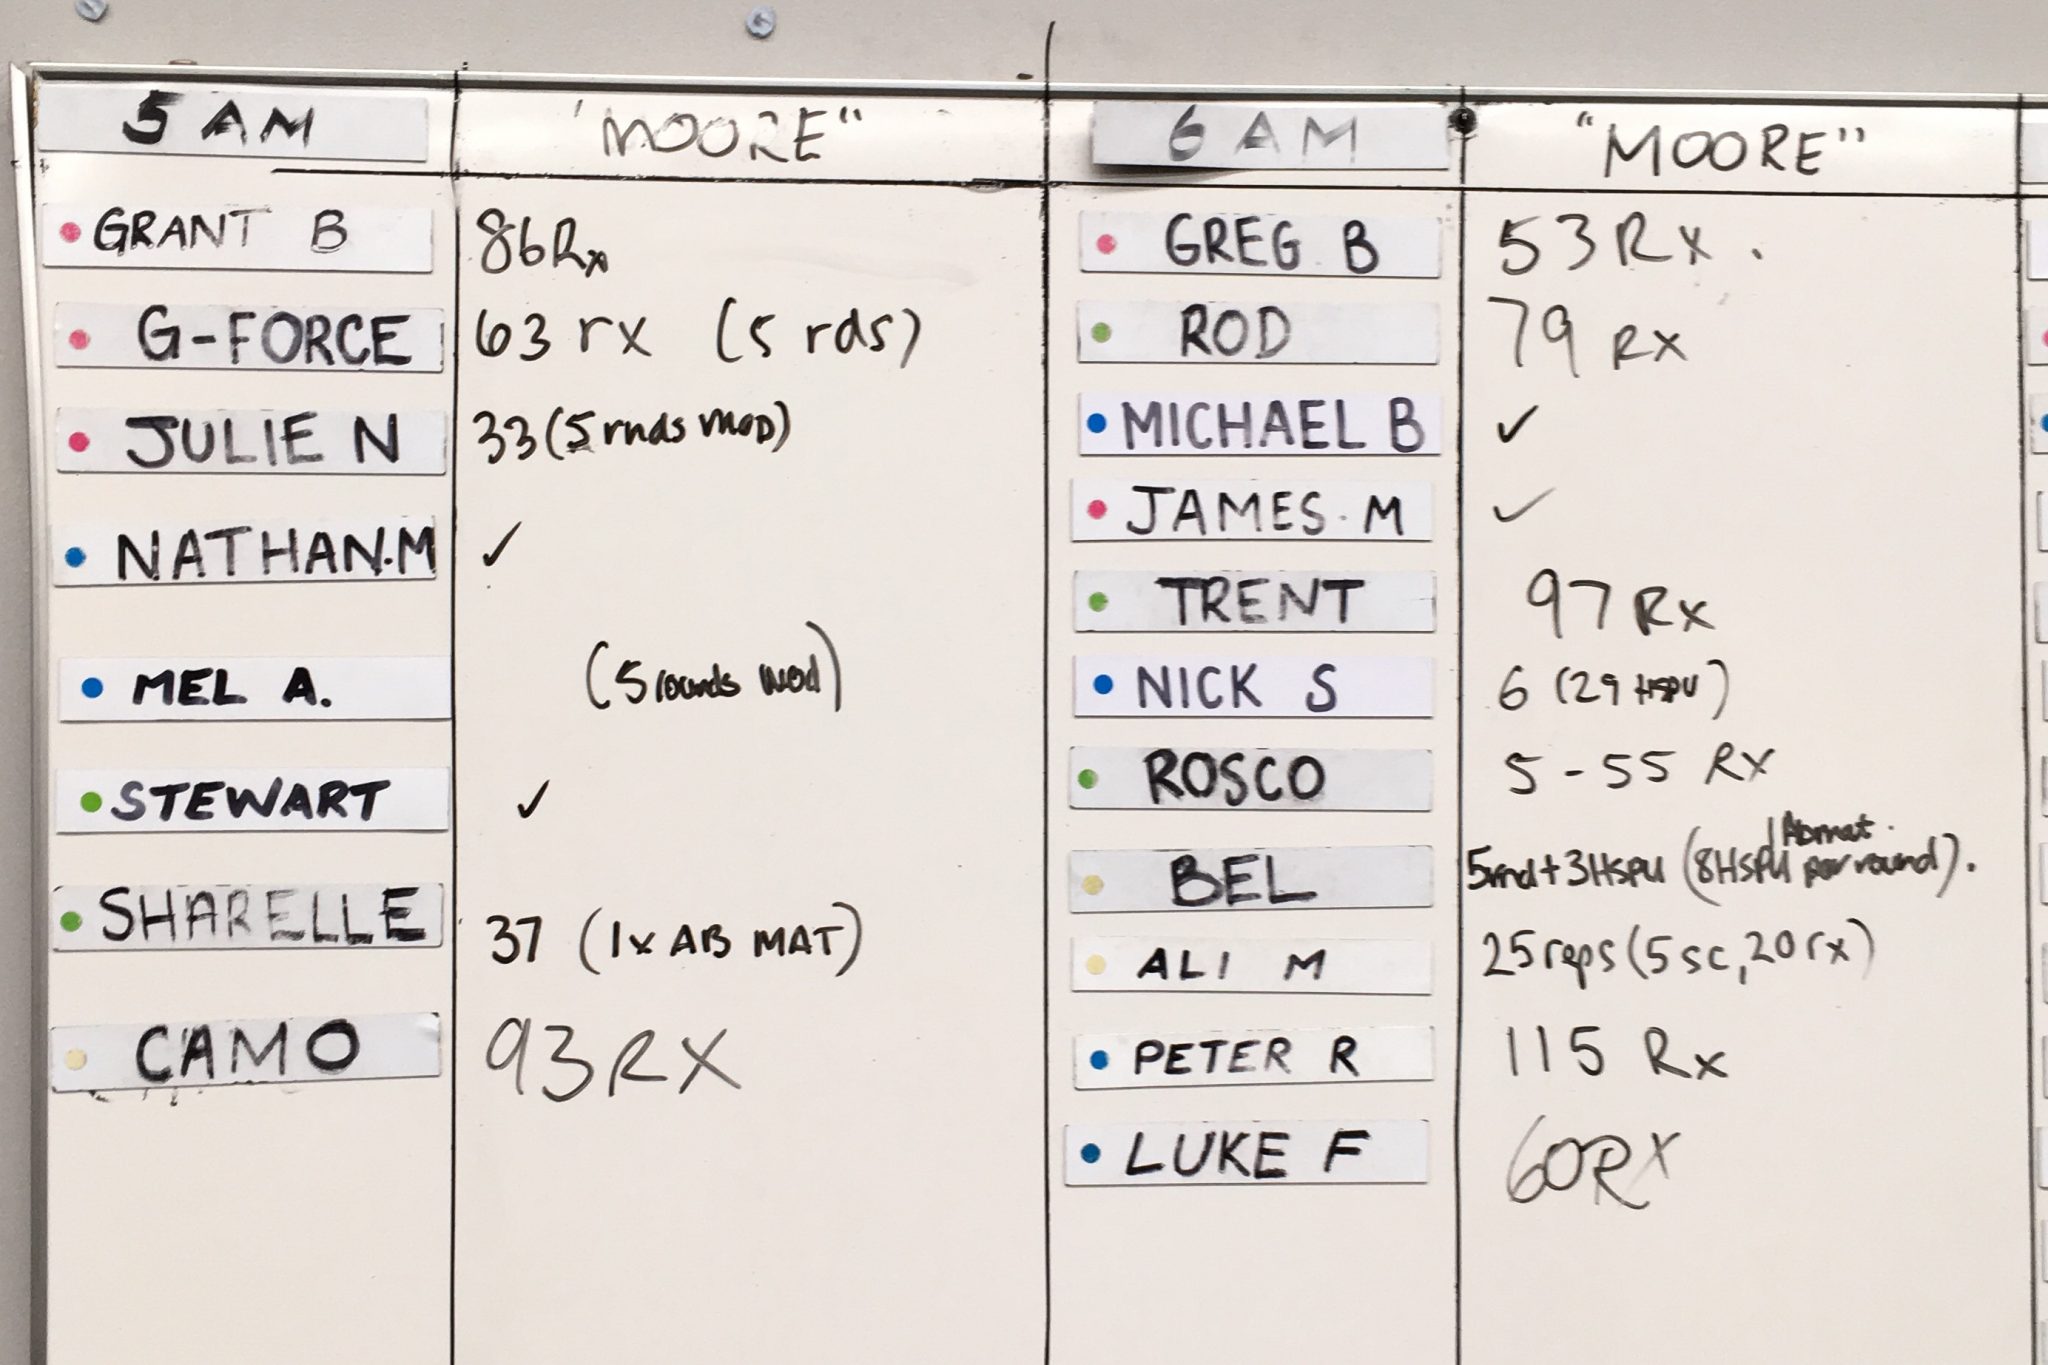 5 AM 'MOORE" 6 AM "MOORE"
GRANT B 86Rx GREG B 53 Rx.
G-FORCE 63 rx (5 rds) ROD 79 RX
JULIE N 33 (5 rnds MOD) MICHAEL B ✓
NATHAN.M ✓ JAMES.M ✓
TRENT 97 Rx
MEL A. (5 rounds mod) NICK S 6 (29 HSPU)
STEWART ✓ ROSCO 5-55 Rx
1 Abmat.
BEL 5rnd+3HSPU (8HSPU per round).
SHARELLE 37 (1x AB MAT) ALI M 25 reps (5 sc, 20 rx)
CAMO 93 RX PETER R 115 Rx
LUKE F 60RX